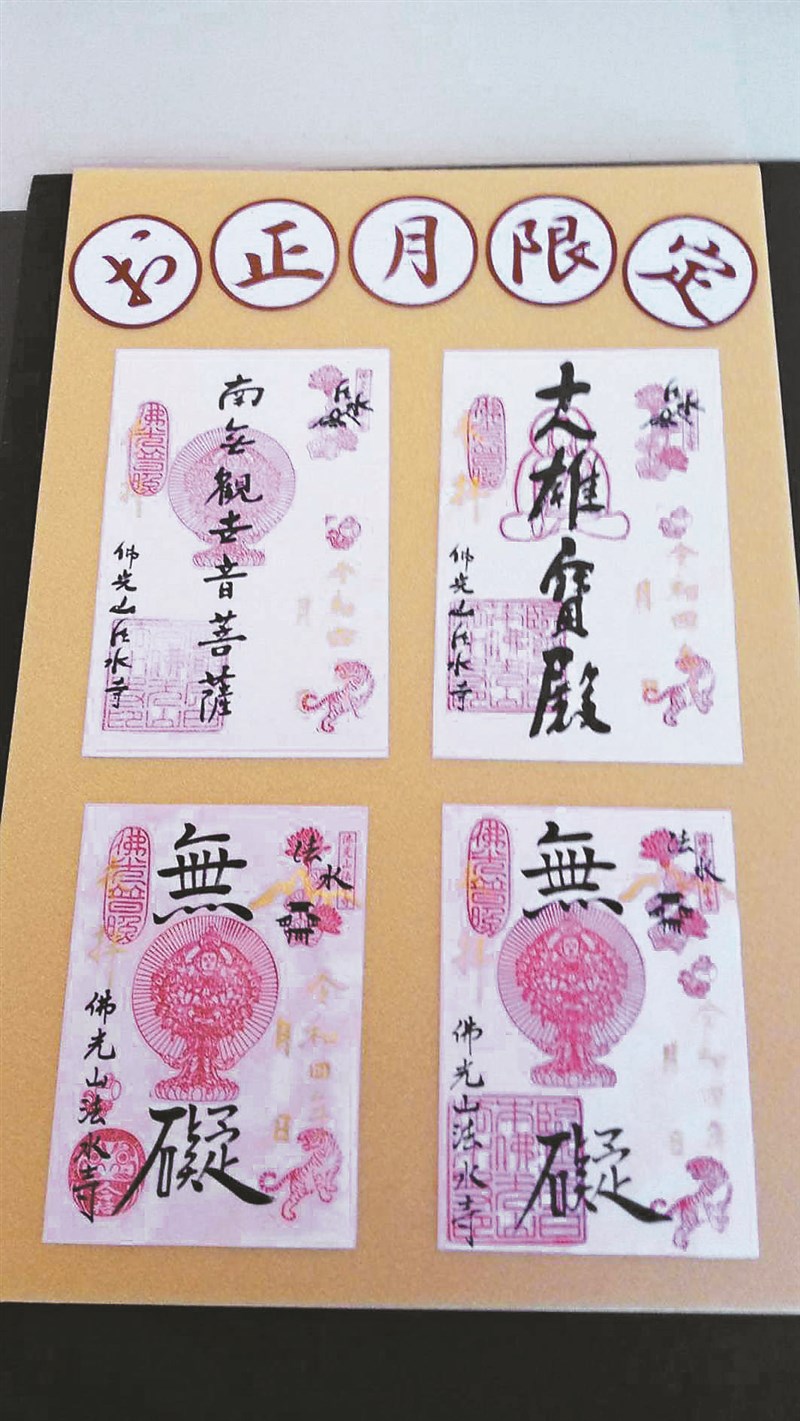 お正月限定
南無観世音菩薩
佛光山法水寺
法水
令和四
月
大雄寶殿
佛光山法水寺
法水
令和四
月
無礙
佛光山法水寺
法水
令和四年
月
日
無礙
佛光山法水寺
法水
令和四年
月
日